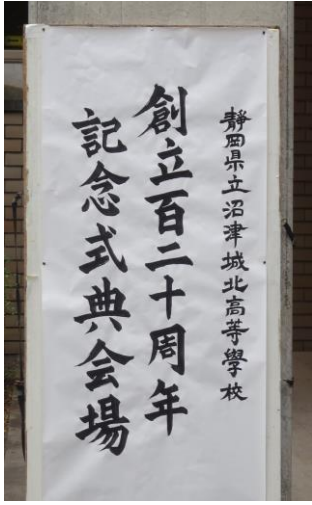 靜岡県立沼津城北高等學校
創立百二十周年
記念式典会場